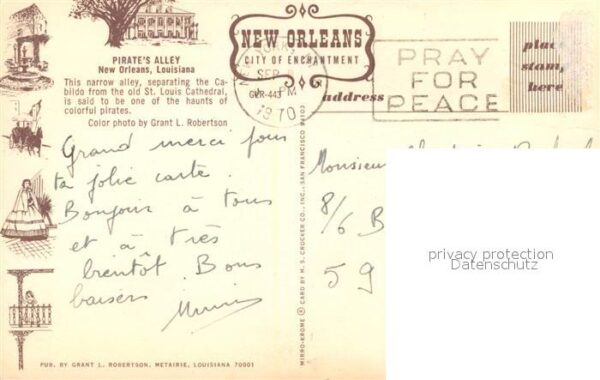 PIRATE'S ALLEY
New Orleans, Louisiana
This narrow alley, separating the Ca-
bildo from the old St. Louis Cathedral,
is said to be one of the haunts of
colorful pirates.
Color photo by Grant L. Robertson
Grand merci pour
ta jolie carte.
Bonjour à tous
et à très
bientôt. Bons
baisers
PUB. BY GRANT L. ROBERTSON, METAIRIE, LOUISIANA 70001
MIRRO-KROME ® CARD BY H. S. CROCKER CO., INC., SAN FRANCISCO
NEW ORLEANS
CITY OF ENCHANTMENT
SEP
PM
1970
PRAY
FOR
PEACE
place
stamp
here
address
Monsieur
8/6 B
59
privacy protection
Datenschutz